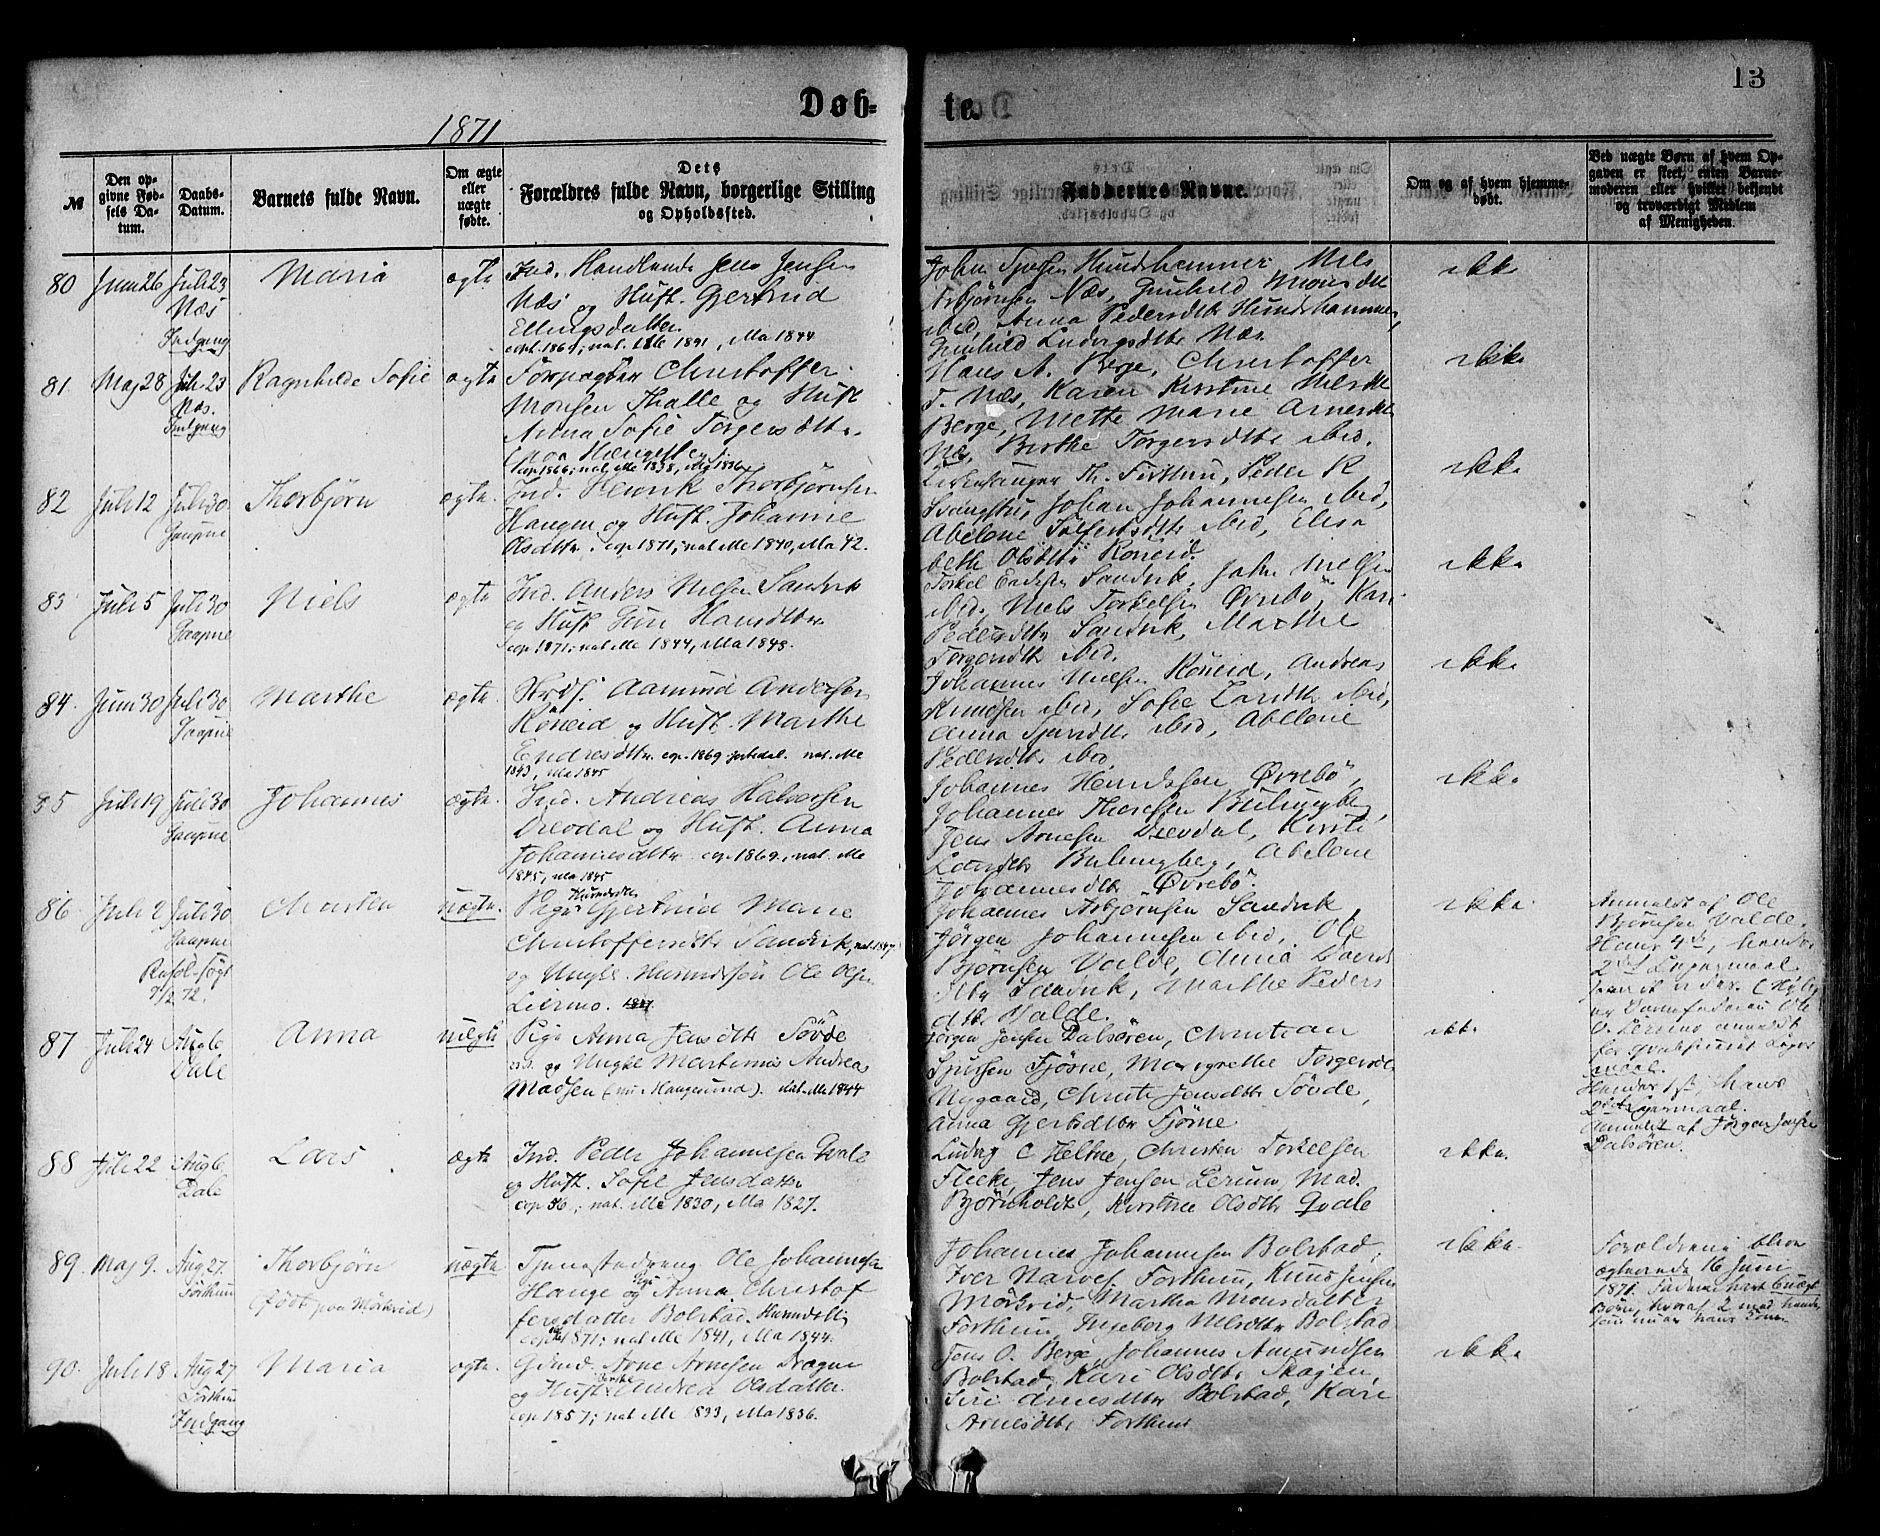 13
Døb-
te.
1871
№
Den op-
givne Fød-
sels Da-
tum.
Daabs-
Datum.
Barnets fulde Navn.
Om ægte
eller
uægte
fødte.
Dets
Forældres fulde Navn, borgerlige Stilling
og Opholdssted.
Faddernes Navne.
Om og af hvem hjemme-
døbt.
Ved uægte Børn af hvem Op-
gaven er skeet, enten Barne-
moderen eller hvilket bekjendt
og troværdigt Medlem
af Menigheden.
80 Juni 26 Juli 23 Maria ægte Ind. Handlende Jens Jensen
Næs Næs og Hust. Gjertrud
Indgang Ellingsdatter.
John Hundshammer Niels
Asbjørnsen Næs, Gunhild Monsdtr
ibid, Anna Pedersdtr Hundshammer,
Gunhild Ludvigsdtr Næs
ikke
81 Maj 28 Juli 23 Ragnhilde Sofie ægte Christoffer
Næs. Monsen Thalle og Hust
Indgang Anna Sofie Torgersdtr.
cop 1866; nat. Me 1838, Ma 1836
Hans A. Berge, Christoffer
T. Næs, Karen Kirstine Nielsdtr
Berge, Mette Marie Arnesdtr
Næs, Birthe Torgersdtr ibid.
ikke
82 Juli 12 Juli 30. Thorbjørn ægte. Ind. Henrik Thorbjørnsen
Gaupne Haugen og Hust. Johanne
Olsdtr. cop. 1871; nat. Me 1840, Ma 42.
Kirkesanger Th. Forthun, Peder R
Johan Johannesen ibid,
Abelone ibid, Elisa
beth Olsdtr Røneid.
ikke
83 Juli 5 Juli 30 Niels ægte Ind. Anders Nielsen Sandvik
Gaupne og Hust. Guri Hansdtr
cop. 1871; nat. Me 1844, Ma 1848.
Torkel Endresen Sandvik, John Nielsen
ibid, Niels Torkelsen Øvrebö, Kari
Pedersdtr Sandvik, Marthe
Torgersdtr ibid.
ikke
84. Juni 30 Juli 30 Marthe ægte. Aamund Andersen
Gaupne Røneid og Hust. Marthe
Endresdtr. cop. 1869 Jostedal. nat. Me
1843, Ma 1845
Johannes Nielsen Røneid, Andreas
Knudsen ibid, Sofie Larsdtr ibid,
Anna ibid, Abelone
Pedersdtr ibid.
ikke
85 Juli 19 Juli 30 Johannes ægte. Ind. Andreas Halvorsen
Gaupne Drevdal og Hust. Anna
Johannesdtr. cop. 1869., nat. Me
1845, Ma 1845
Johannes Henriksen Øvrebö,
Johannes Thoresen Bulungberg,
Jens Arnesen Drevdal, Kirsti
Larsdtr Bulungberg, Abelone
Johannesdtr Øvrebö.
ikke
86 Juli 2 Juli 30 Christen uægte. Pige Gjertrud Marie
Gaupne Christoffersdtr Sandvik, nat. 1847
9/2 72. og Ungk. Ole Olsen
Liermo.
Johannes Asbjørnsen Sandvik
Jørgen Johannesen ibid, Ole
Bjørnsen Valde, Anna Davids
dtr Sandvik, Marthe Peders
dtr Valde.
ikke.
Anmeldt af Ole
Bjørnsen Valde.
Hans 4de, hendes
2det Leiermaal.
87 Juli 24 Aug 6 Anna uægte Pige Anna Jensdtr Søvde
Dale og Ungk. Martinus Andreas
Madsen (nu i Haugesund). nat. Me 1844
Jørgen Jensen Dalsøren, Christian
Sjursen Fjøsne, Margrethe Torgersdtr
Nygaard, Christi Jensdtr Søvde,
Anna Gjertsdtr Fjøsne
ikke
Hendes 1ste, hans
2det Leiermaal.
Anmeldt af Jørgen Jensen
Dalsøren.
88 Juli 22 Aug 6 Lars ægte Ind. Peder Johannesen Qvale
Dale og Hust. Sofie Jensdatter
cop 56.; nat. Me 1830, Ma 1827.
Ludvig C Heltne, Christen Torkelsen
Flicke, Jens Jensen Lerum, Mad.
Bjørnholdt, Kirstine Olsdtr Qvale
ikke.
89. Maj 9. Aug 27. Thorbjørn uægte Tjenestedreng Ole Johannesen
Forthun (født paa Mørkrid) Hauge og Pige Anna Christof
fersdatter Bolstad.
cop. 1871; nat Me 1841, Ma 1844.
Johannes Johannesen Bolstad,
Iver Forthun, Knud Jensen
Mörkrid, Martha Monsdatter
Forthun, Ingeborg Nilsdtr Bolstad
ikke.
Forældrene bleve
ægteviede 16 Juni
1871.
90. Juli 18 Aug 27 Maria ægte. Gdmd. Arne Arnesen Drægne
Forthun og Hust. Birthe Andrea Olsdatter.
Indgang cop 1857; nat Me 1833, Ma 1836.
Jens O. Berge, Johannes Amundsen
Bolstad, Kari Olsdtr Skagen,
Siri Arnesdtr Bolstad, Kari
Arnesdtr Forthun
ikke